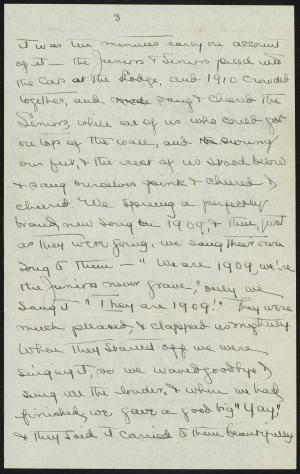 3
it was ten minutes early on account
of it — the Juniors & Seniors piled into
the cars at the Lodge, and 1910 crowded
together, and sang & cheered the
Seniors, while all of us who could got
on top of the wall, and swung
our feet, & the rest of us stood below
& sang ourselves pink & cheered &
cheered. We sprung a perfectly
brand new song on 1909, & then, just
as they were going, we sang their own
song to them — "We are 1909, we're
the Juniors never grave," only we
sang it "They are 1909!" They were
much pleased, & clapped us mightily
When they started off we were
singing it, so we waved goodbye &
sung all the louder, & when we had
finished, we gave a good big "Yay!"
& they said it carried to them beautifully